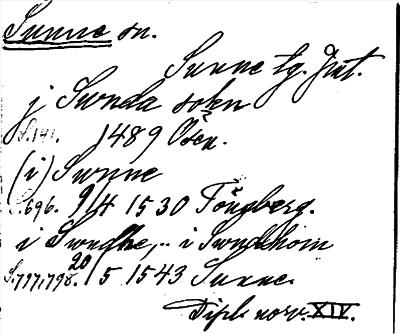 Sunne sn.
Sunne tg. Jmt.
j Swnda sokn
S.141. 1489 Ösn.
(i) Swnne
S.696. 9/4 1530 Töngberg.
i Swndhe, .. i Swndhom
S.797,798. 20/5 1543 Sunne.
Dipl. norv. XIV.